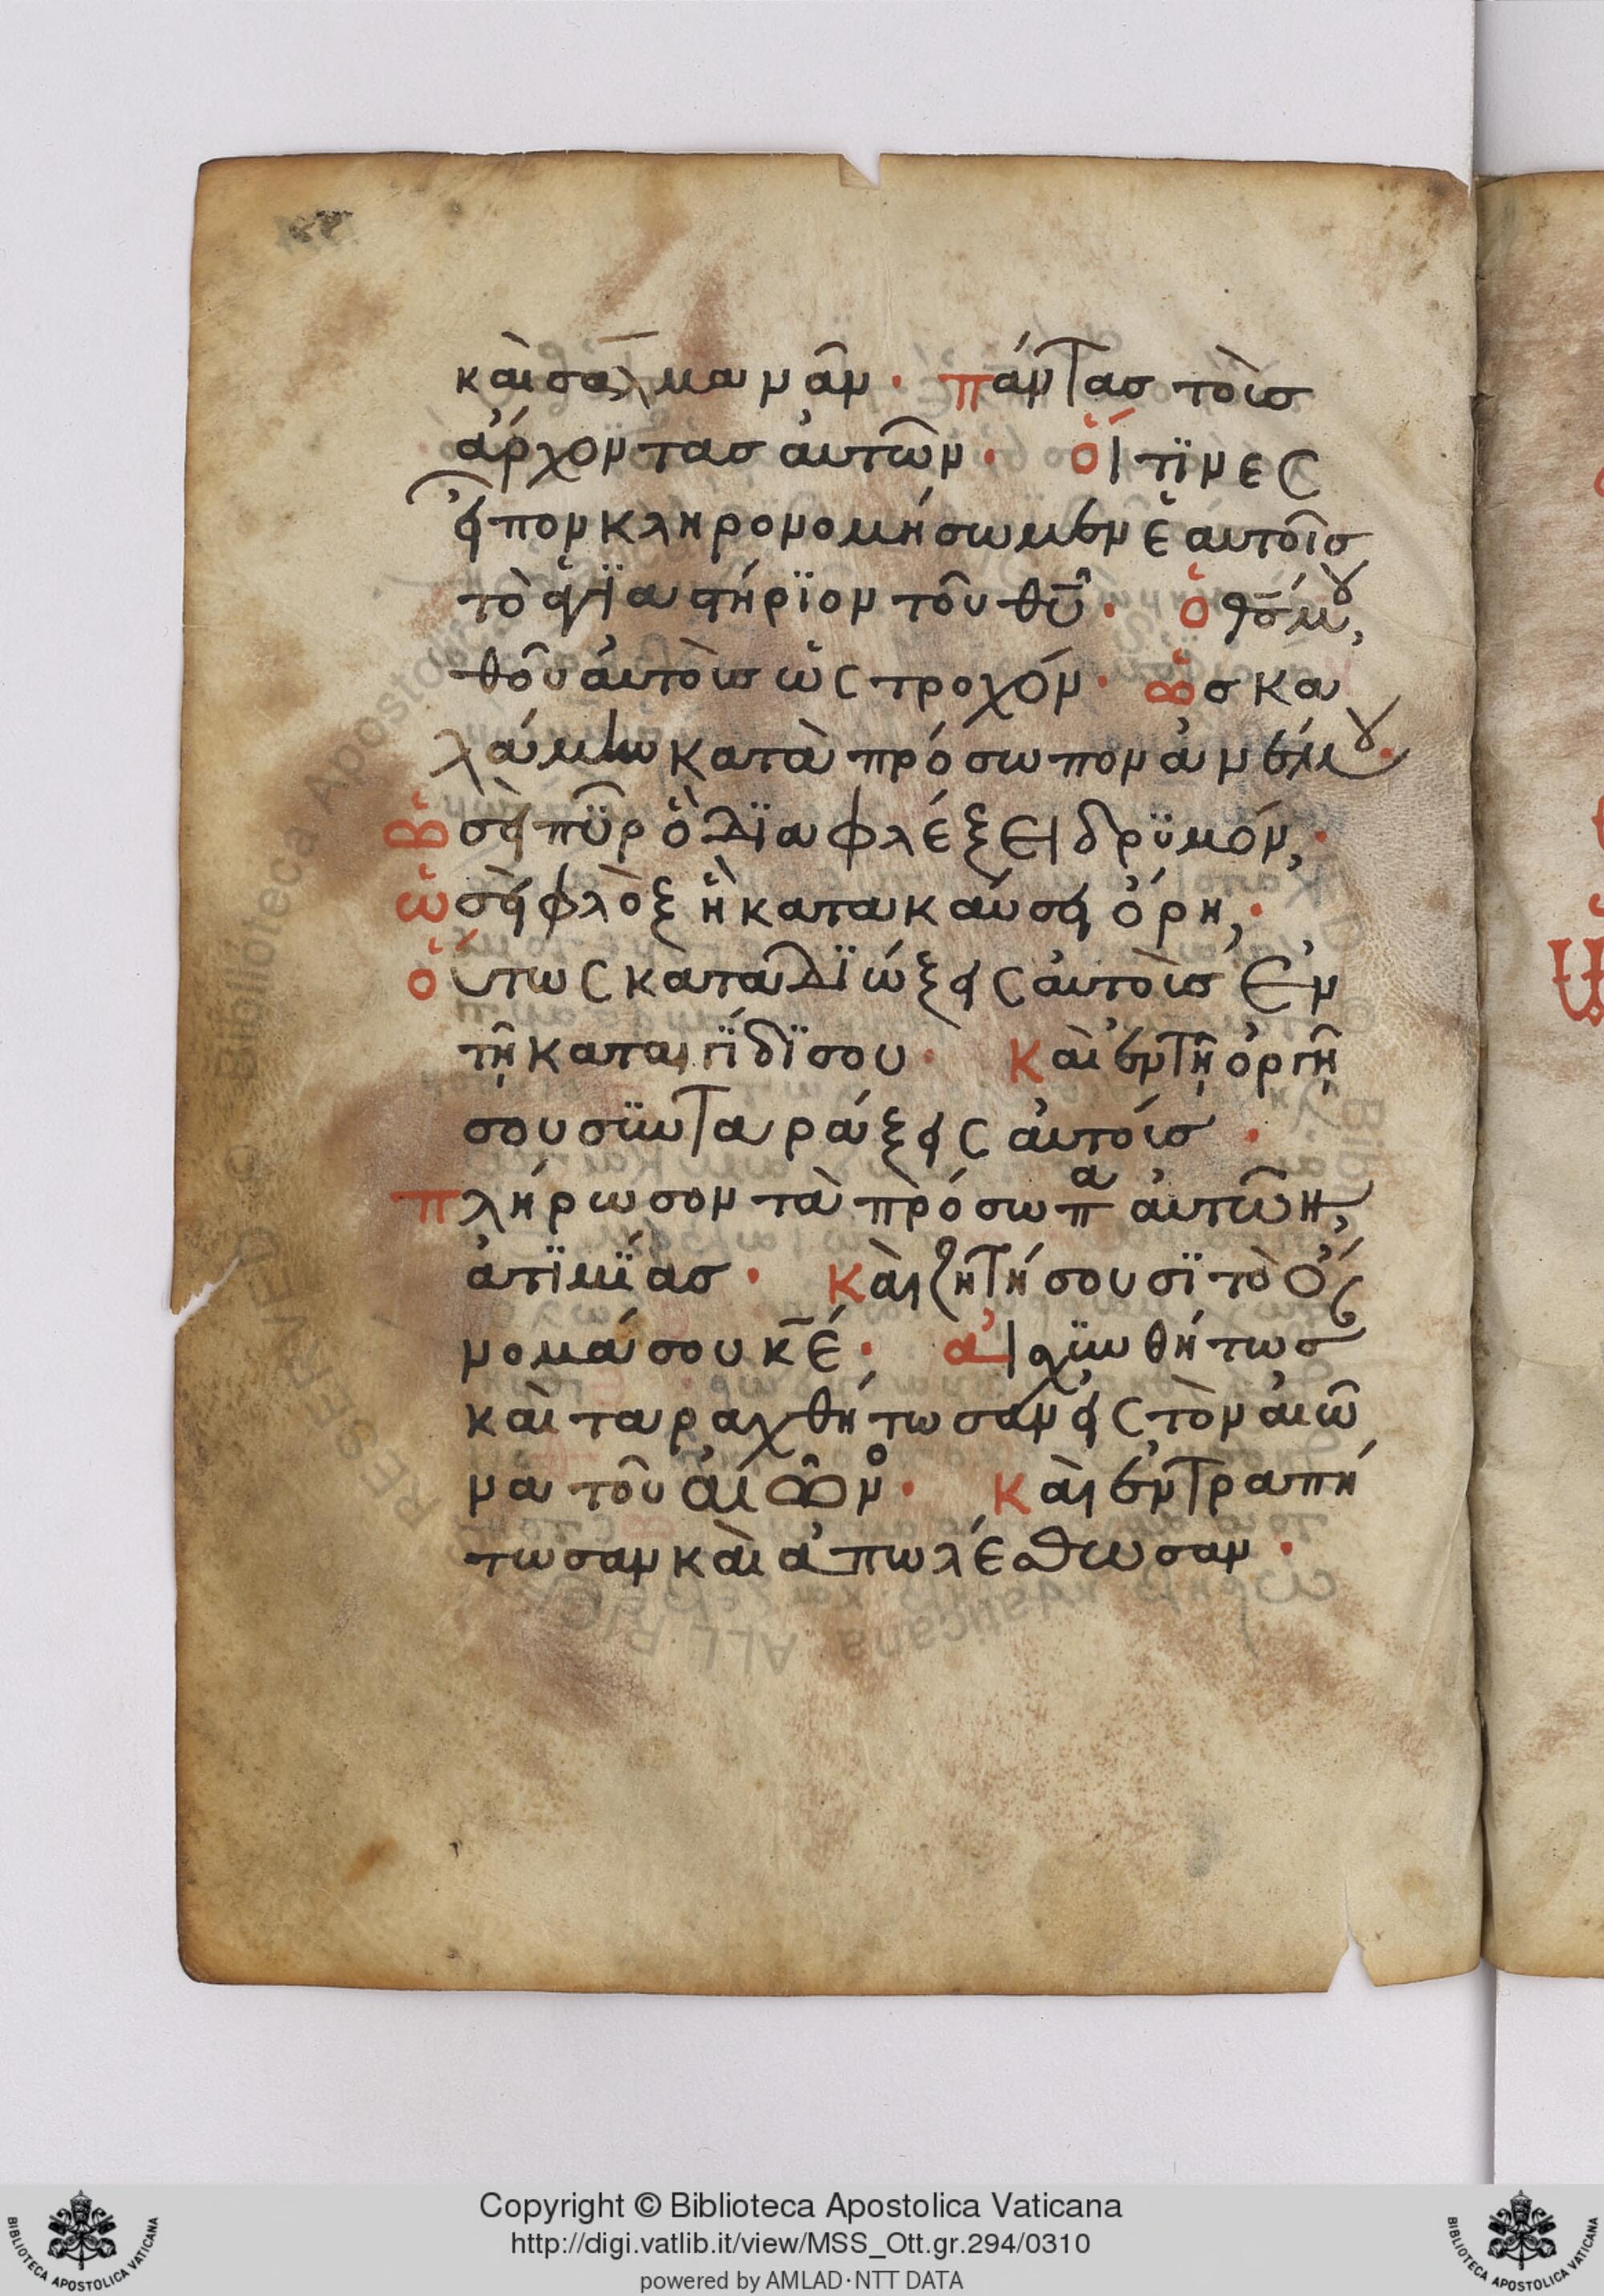 καὶ σαλμανᾶν· πάντας τοὺσ
ἄρχοντασ ἀυτῶν· ὅιτϊνες
εἶπον κληρονομήσωμεν ἑαυτοῖσ
τὸ ἁγϊαστήρϊον τοῦ θῦ· ὁ θσ μου,
θοῦ ἀυτοὺσ ὡς τροχόν· ὡσ κα
λάμην κατὰ πρόσωπον ἀνέμου·
ὡσεὶ πῦρ ὃ δϊαφλέξει δρϋμόν,·
ὡσεὶ φλὸξ ἣ κατακαύσει ὄρη,·
ὅυτως καταδϊώξεις ἀυτοὺσ ἐν
τῇ καταιγίδϊ σου· Καὶ ἐν τῇ ὀργῇ
σου συνταράξεις ἀυτούσ·
πλήρωσον τὰ πρόσωπα ἀυτῶν,
ἀτϊμΐασ· Καὶ ζητήσουσϊ τὸ ὄ
νομά σου κε̄· ἀισχυνθήτωσ
καὶ ταραχθήτωσαν εἰς τὸν αἰῶ
να τοῦ αἰῶνο· Καὶ ἐντραπή
τωσαν καὶ ἀπωλέσθωσαν·
Copyright © Biblioteca Apostolica Vaticana
http://digi.vatlib.it/view/MSS_Ott.gr.294/0310
powered by AMLAD·NTT DATA
BIBLIOTECA APOSTOLICA VATICANA
BIBLIOTECA APOSTOLICA VATICANA